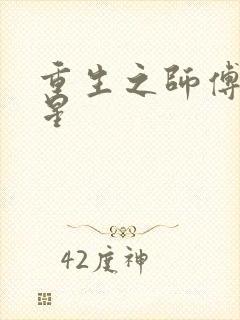 重生之師傅
星
42度神